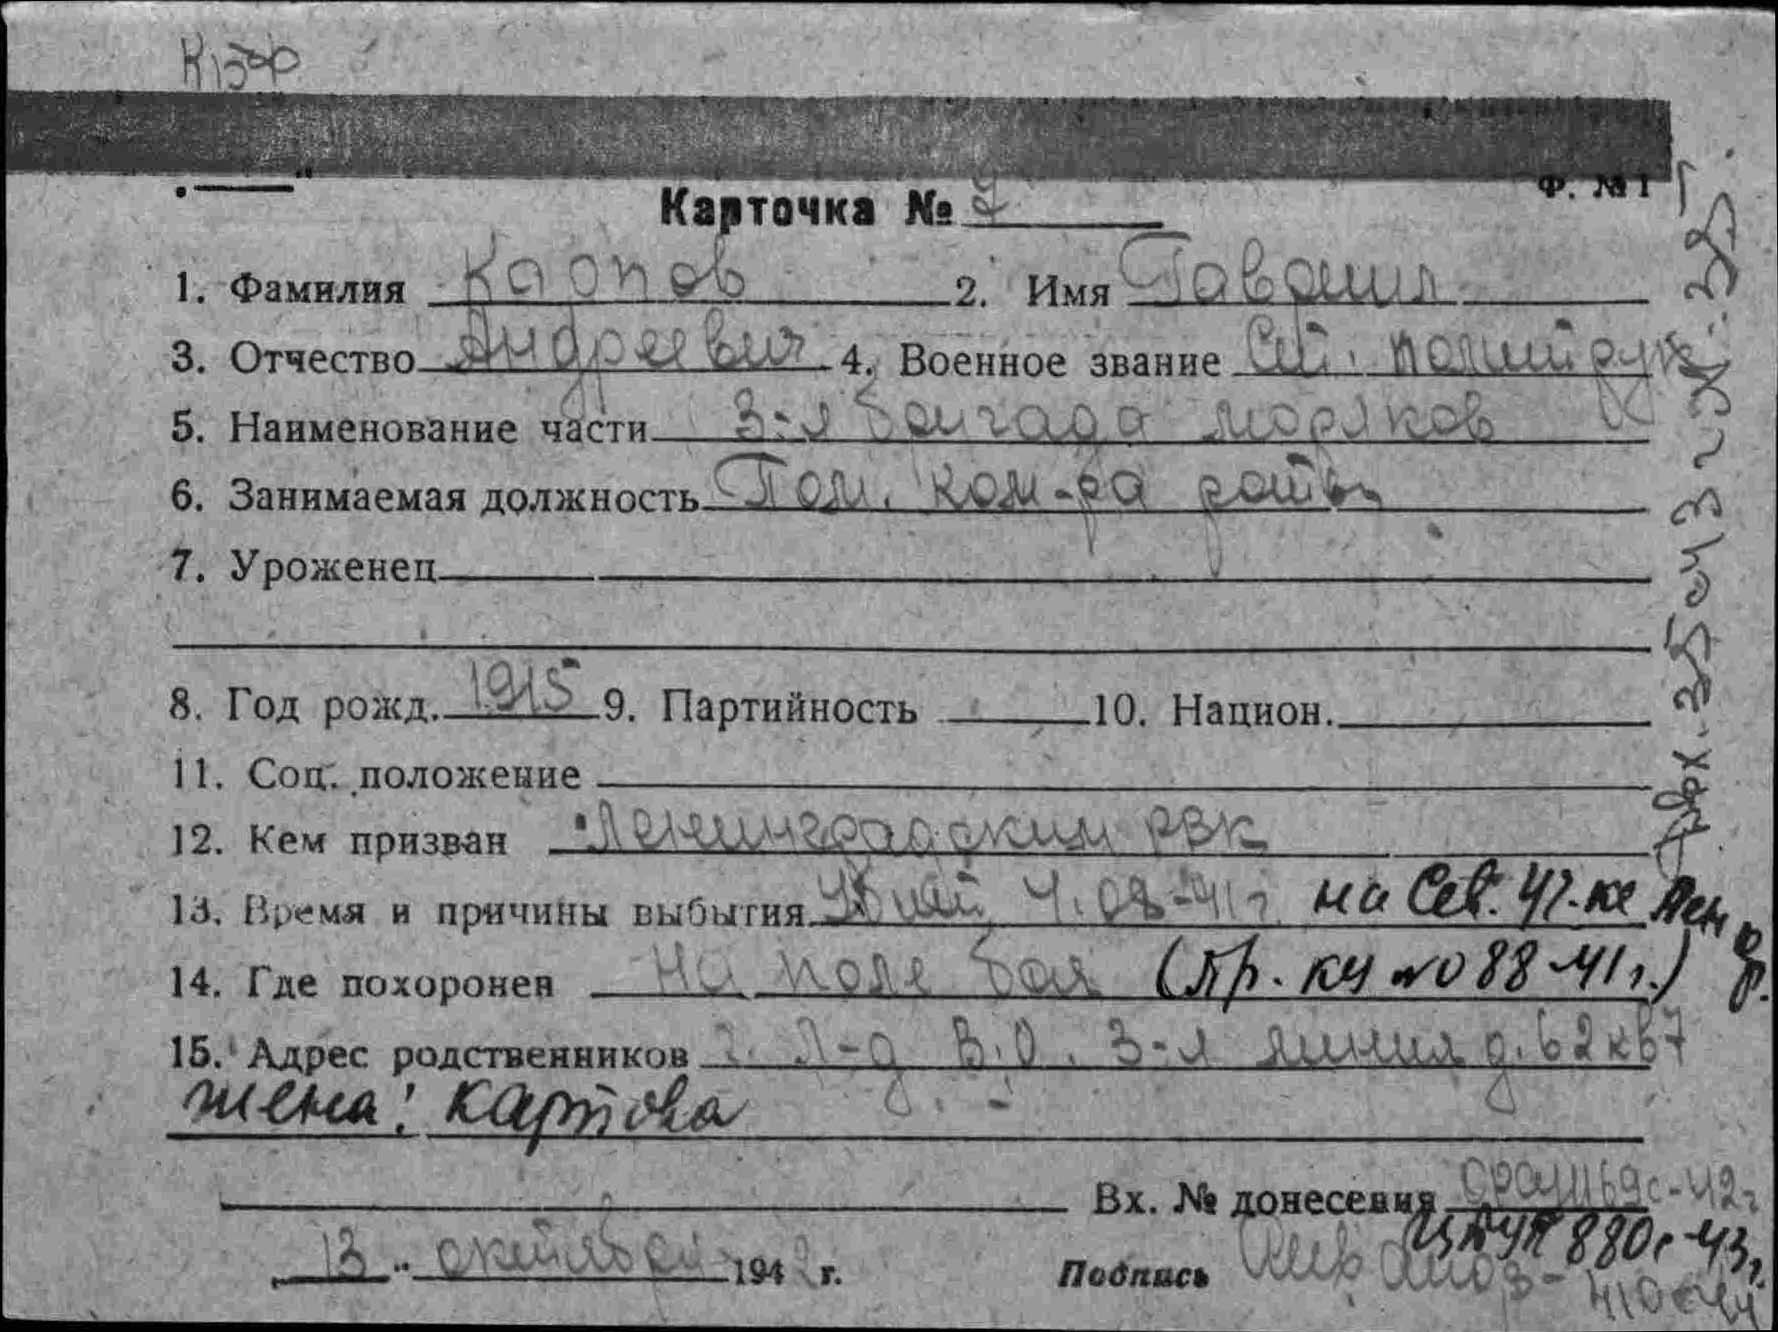 Ф. № 1
Карточка №
1. Фамилия Карпов 2. Имя Гавриил
3. Отчество Андреевич 4. Военное звание Ст. политрук
5. Наименование части 3-я бригада моряков
6. Занимаемая должность Пом. ком-ра роты
7. Уроженец
8. Год рожд. 1915 9. Партийность 10. Национ.
11. Соц. положение
12. Кем призван Ленинградским РВК
13. Время и причины выбытия Убит 4.08-41 г. на Сев. уч-ке Лен. ф.
14. Где похоронен На поле боя (пр. КУ №088-41г.)
15. Адрес родственников г. Л-д В.О. 3-я линия д. 62 кв 7
жена: Карпова
Вх. № донесения
13 октября 194 г. Подпись 880с-43г.